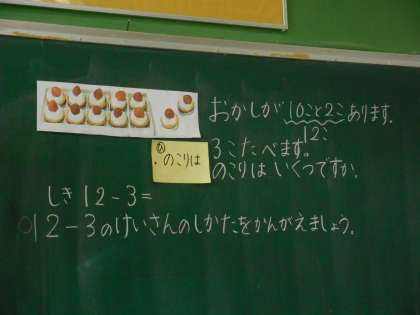 おかしが10こと2こあります。
12こ
3こたべます。
のこりはいくつですか。
・のこりは
しき12-3=
○12-3のけいさんのしかたをかんがえましょう。